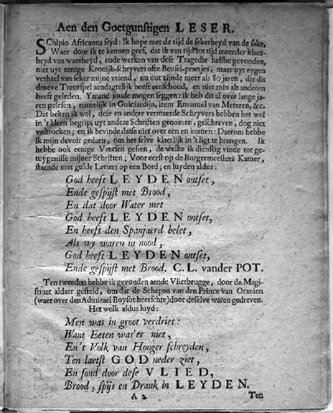 Aen den Goetgunstigen LESER.
SChipio Africanus seyd: Ik hope met de tijd de sekerheyd van de sake,
Waer door ik te kennen geef, dat ik van tijd tot tijd meerder klaer-
heyd van waerheyd, ende werken van dese Tragedie hebbe gevonden,
niet uyt eenige Kronijk-schryvers ofte Beusel-praetjes, maer uyt eygen
verhael van seker mijne vriend, nu out zijnde meer als 80 jaren, die dit
droeve Treurspel aendagtelijk heeft aenschoud, en niet min als anderen
heeft geleden. Yemand soude mogen seggen: ik heb dit al over lange ja-
ren gelesen, namelijk in Guiciardijn, item Emanuel van Meteren, &c.
Dat beken ik wel, dese en andere vermaerde Schryvers hebben het wel
in 't kleen begrijp uyt andere Schriften genomen, geschreven, dog niet
voltrocken; en ik bevinde dasse niet over een en komen: Daerom hebbe
ik mijn devoir gedaen, om het selve klaerlijk in 't ligt te brengen. Ik
hebbe ook eenige Værsen gesien, de welke ik dienstig vinde tot ge-
tuygenisse mijner Schriften, Voor eerst op de Burgermeesters Kamer,
staende met gulde Letters op een Bord; en luyden aldus:
God heeft LEYDEN ontset,
Ende gespijst met Brood,
En dat door Water met
God heeft LEYDEN ontset,
En heeft den Spanjaerd belet,
Als wy waren in nood,
God heeft LEYDEN ontset,
Ende gespijst met Brood. C. L. vander POT.
Ten tweeden hebbe ik gevonden aende Vlietbrugge, door de Magi-
straet aldaer gestelt, om dat de Schepen van den Prince van Oranien
(waer over den Admirael Boysot heerschte) door deselve waren gedreven.
Het welk aldus luyd:
Men was in groot verdriet:
Want Eeten was'er niet,
En 't Volk van Honger schreyden,
Ten laetst GOD neder ziet,
En sond door dese VLIED,
Brood, spijs en Drank in LEYDEN.
A 2 Ten